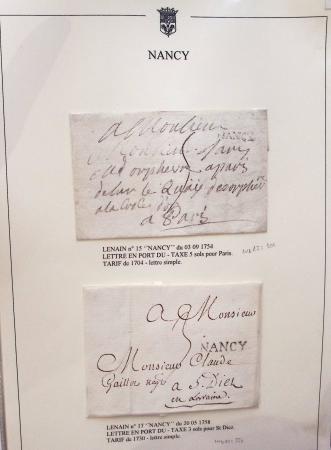 NANCY
A Monsieur
Monsieur
NANCY
orphevre a paris
sur le Quay des orphev
a la
a Paris
LENAIN n° 15 "NANCY" du 03 09 1754
LETTRE EN PORT DU - TAXE 5 sols pour Paris.
TARIF de 1704 - lettre simple.
A Monsieur
NANCY
Monsieur Claude
Gaillot
a St. Diez
en Lorraine
LENAIN n° 17 "NANCY" du 20 05 1758
LETTRE EN PORT DU - TAXE 3 sols pour St Diez.
TARIF de 1730 - lettre simple.